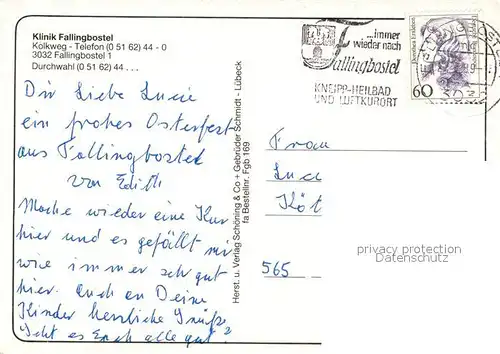 Klinik Fallingbostel
Kolkweg - Telefon (0 51 62) 44 - 0
3032 Fallingbostel 1
Durchwahl (0 51 62) 44 . . .
...immer
wieder nach
Fallingbostel
KNEIPP-HEILBAD
UND LUFTKURORT
60
Dir Liebe Lucie
ein frohes Osterfest
aus Fallingbostel
von Edith
Mache wieder eine Kur
hier und es gefällt mir
wie immer sehr gut
hier. Auch an Deine
Kinder herzliche Grüße
Geht es Euch alle gut?
Herst. u. Verlag Schöning & Co + Gebrüder Schmidt - Lübeck
fa Bestellnr. Fgb 169
Frau
Luc
Köt
565
privacy protection
Datenschutz